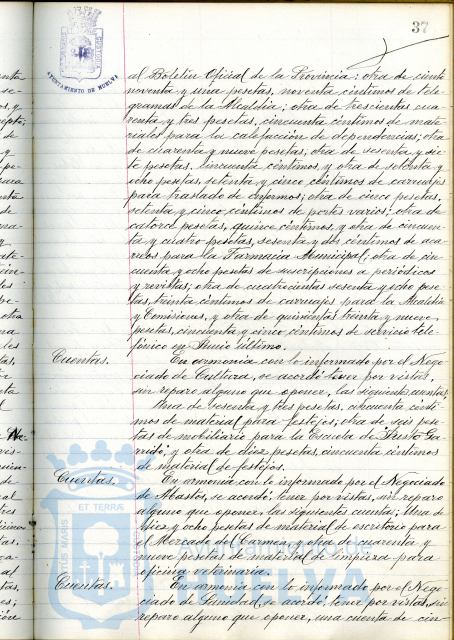 37
AYUNTAMIENTO DE HUELVA
al Boletín Oficial de la Provincia; otra de ciento
noventa y una pesetas, noventa céntimos de tele-
gramas de la Alcaldía; otra de trescientas cua-
renta y tres pesetas, cincuenta céntimos de mate-
riales para la calefacción de dependencias; otra
de cuarenta y nueve pesetas, otra de sesenta y sie-
te pesetas, cincuenta céntimos, y otra de setenta y
ocho pesetas, setenta y cinco céntimos de carruajes
para traslado de enfermos; otra de cinco pesetas,
setenta y cinco céntimos de portes varios; otra de
catorce pesetas, quince céntimos, y otra de cincuen-
ta y cuatro pesetas, sesenta y dos céntimos de aca-
rreos para la Farmacia Municipal; otra de cin-
cuenta y ocho pesetas de suscripciones a periódicos
y revistas; otra de cuatrocientas sesenta y ocho pese-
tas, treinta céntimos de carruajes para la Alcaldía
y Comisiones, y otra de quinientas treinta y nueve
pesetas, cincuenta y cinco céntimos de servicio tele-
fónico en Junio último.
Cuentas. En armonía con lo informado por el Nego-
ciado de Cultura, se acordó tener por vistas,
sin reparo alguno que oponer, las siguientes cuentas:
Una de sesenta y tres pesetas, cincuenta cénti-
mos de material para festejos, otra de seis pese-
tas de mobiliario para la Escuela de Justo Ga-
rrido, y otra de diez pesetas, cincuenta céntimos
de material de festejos.
Cuentas. En armonía con lo informado por el Negociado
de Abastos, se acordó tener por vistas, sin reparo
alguno que oponer, las siguientes cuentas; Una de
diez y ocho pesetas de material de escritorio para
el Mercado del Carmen, y otra de cuarenta y
nueve pesetas de material de limpieza para
oficina veterinaria.
Cuentas. En armonía con lo informado por el Nego-
ciado de Sanidad, se acordó tener por vistas, sin
reparo alguno que oponer, una cuenta de cin
ET TERRÆ
HUELVA